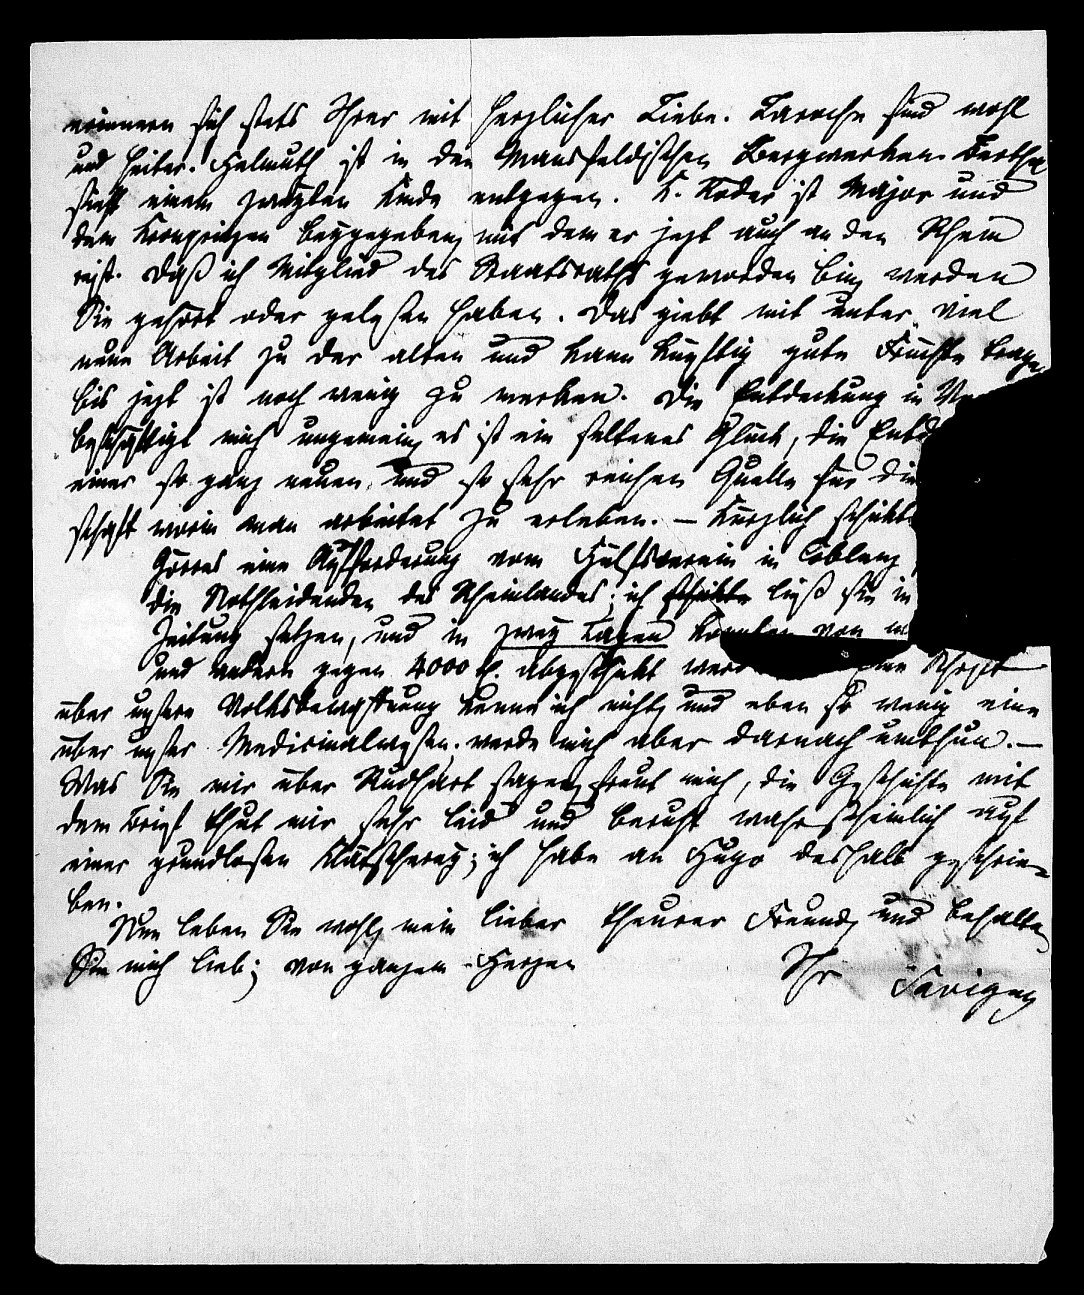 erinnern sich stets Ihrer mit herzlicher Liebe. Laroche sind wohl
und heiter. Helmuth ist in den Mansfeldischen Bergwerken. Bertha
sieht einem zweyten Kinde entgegen. C. Röder ist Major und
dem Kronprinzen beygegeben, mit dem er jezt auch an den Rhein
reist. Daß ich Mitglied des Staatsraths geworden bin, werden
Sie gehört oder gelesen haben. Das giebt mit unter viel
neue Arbeit zu der alten und kann künftig gute Früchte tragen
bis jezt ist noch wenig zu merken. Die Entdeckung in Ve
beschäftigt mich ungemein, es ist ein seltenes Glück, die Entd
einer so ganz neuen, und so sehr reichen Quelle für die
schaft worin man arbeitet zu erleben. – Kürzlich schickt
Görres eine Aufforderung vom Hülfsverein in Coblenz
die Nothleidenden des Rheinlandes; ich schickte ließ sie in
Zeitung setzen, und in zwey Tagen konnten von m
und andern gegen 4000 f. abgeschickt werd Schrift
über unsere Volksbewaffnung kenne ich nicht, und eben so wenig eine
über unser Medicinalwesen. werde mich aber darnach umthun. –
Was Sie mir über Rudhart sagen, freut mich, die Geschichte mit
dem Brief thut mir sehr leid und beruht wahrscheinlich auf
einer grundlosen Klatscherey; ich habe an Hugo deshalb geschrie-
ben.
Nun leben Sie wohl, mein lieber theurer Freund, und behalten
Sie mich lieb; von ganzem Herzen
Ihr Savigny